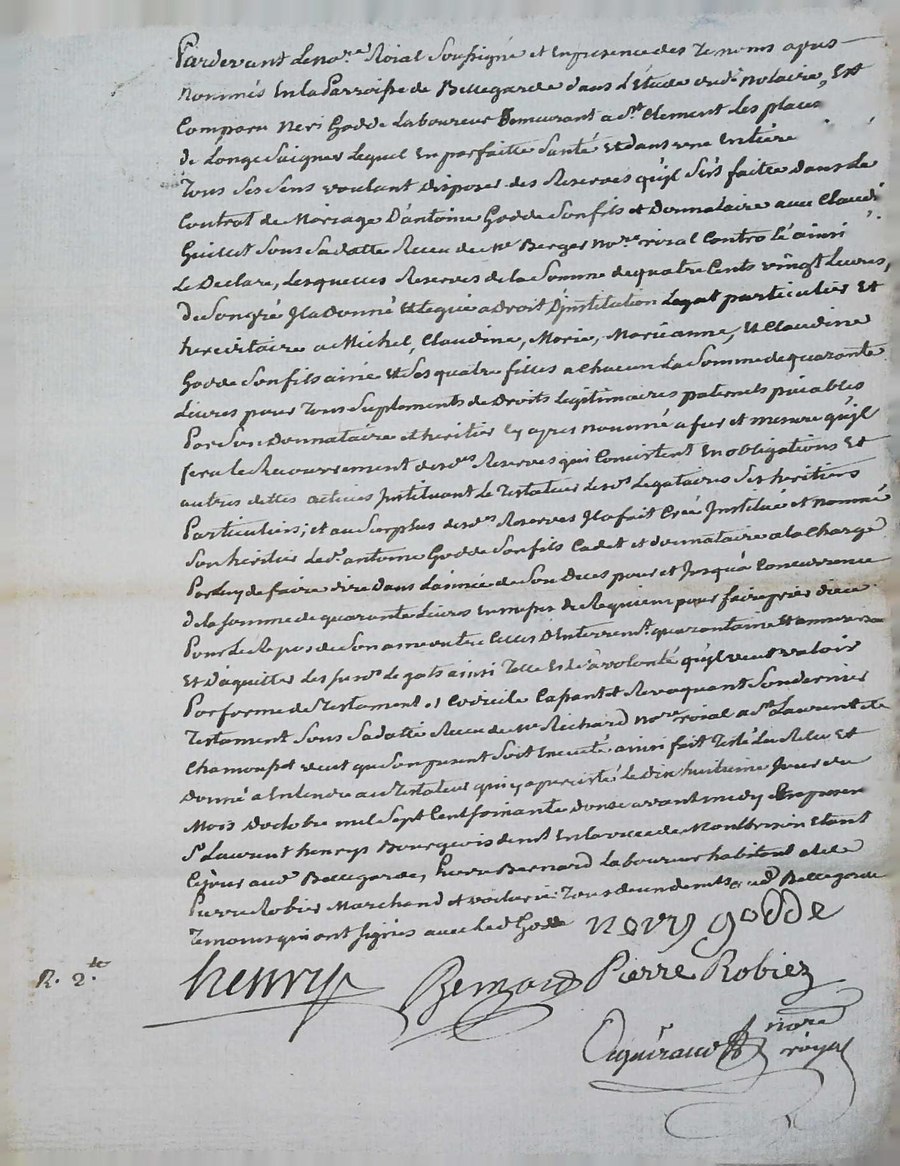 Pardevant Le no.re Roial Soussigné et En presence des Temoins apres
nommés En la Parroisse de Bellegarde dans L'Etude dudi. notaire, Est
Comparu Neri Godde Laboureur Demeurant a St. Clement Les places
de Longe Saigner Lequel En parfaitte Santé Et dans une Entiere
Tous Ses Sens voulant disposer des Reserves quil S'es faitte dans Le
Contrat de Mariage D'antoine Godde Son fils et Donnataire avec Claudi
Guillet Sous Sa datte Receu de Me Berger nore. roial Controlé ainsi
Le Declare, Lesquelles Reserves de la Somme de quatre Cents vingt Livres,
de Son gré Il a Donné Et Legué a Droit D'institution Legat particulier Et
hereditaire a Michel, Claudine, Marie, Marianne, Et Claudine
Godde Son fils ainé Et Ses quatre filles a chacun La Somme de quarante
Livres pour Tous Suplements de Droits Legitimaires paternels paiables
Par Son Donnataire et heritier Cy apres nommé a fur et mesure qu'il
fera le Recouvrement desd.es Reserves qui Consistent En obligations Et
autres dettes actives Instituant Le Testateur lesd.s Legataires Ses heritiers
Particuliers; et au Surplus desd.s Reserves Il a fait Creé Institué et nommé
Son heritier Led.t antoine Godde Son fils Cadet et donnataire a la Charge
Par Luy de faire dire dans L'année de Son Deces pour et Jusqu'a Concurrence
de la Somme de quarante Livres En messes de Requiem pour faire prier dieu
Pour Le Repos de Son ame outre Celles D'Enterrem.t quarantaine Et anniversa
Et D'aquitter Les susd.s Legats ainsi Telle Est Sa volonté qu'il veut valoir
Par forme de Testament et Codicile Cassant et Revoquant Son dernier
Testament Sous Sa datte Receu de Me Richard nore. roial a St. Laurent de
Chamousset veut que Son present Soit Executé ainsi fait Testé Lu Relu Et
Donné a Entendre au Testateur qui y a persisté Le Dix huitieme Jour du
Mois D'octobre mil Sept Cent Soixante douse avant midy En presence
Sr. Laurent henrys Bourgeois dem.t En la ville de Montbrison Etant
Ce jour aud. Bellegarde, Pierre Bernard Laboureur habitant
Pierre Robier Marchand et voiturier Tous deux demts. aud. Bellegarde
Temoins qui ont Signés avec Led. Godde nery godde
henrys Bernard Pierre Robier
R. 2.te
nore
royal